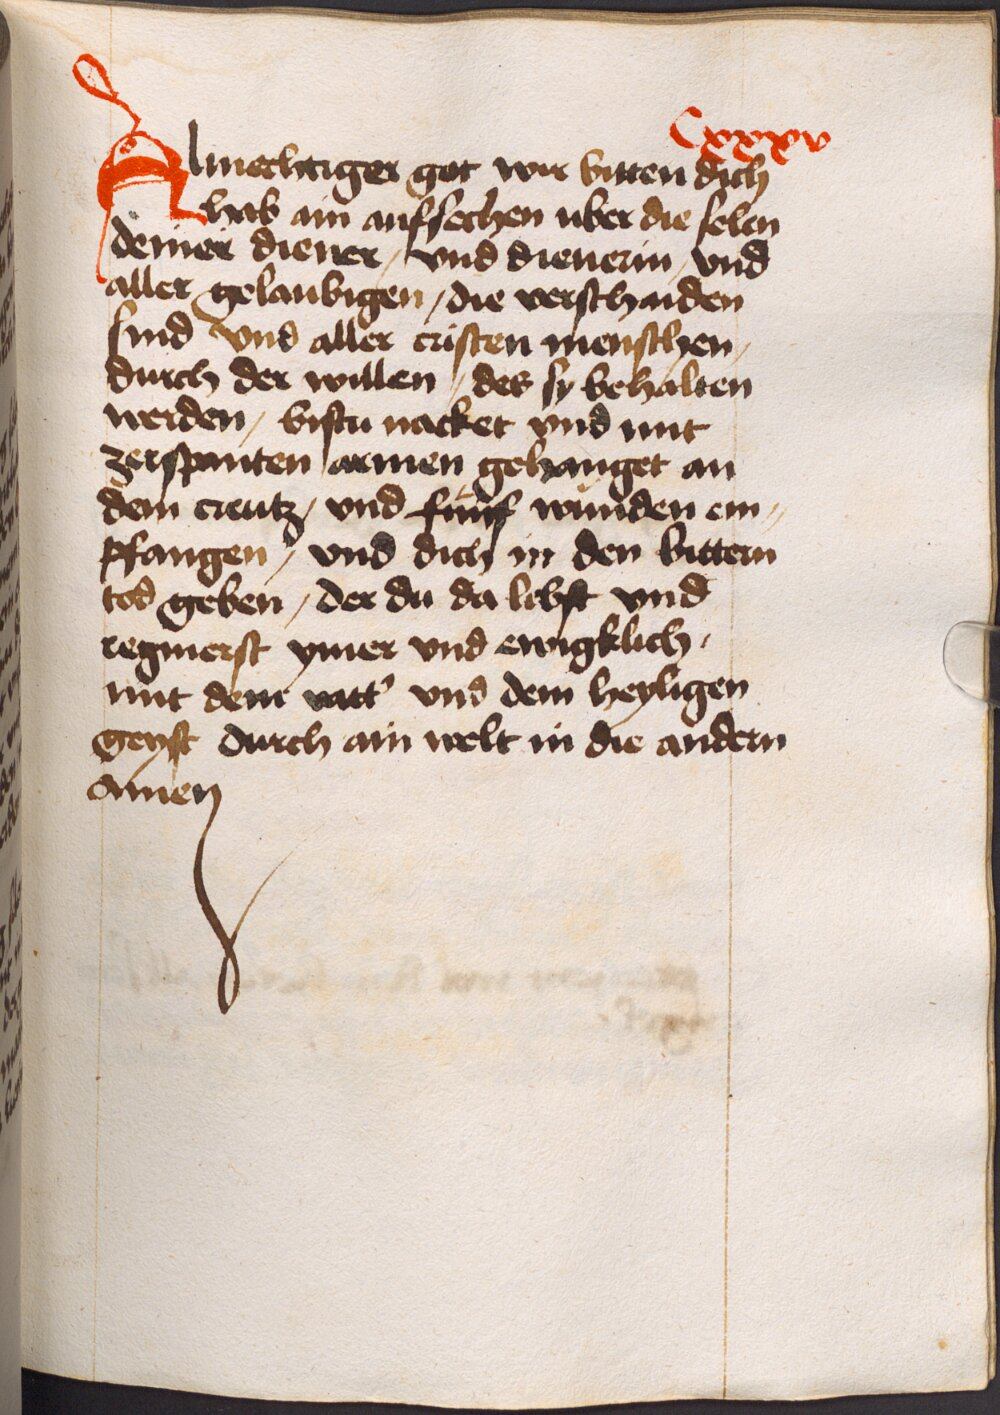 Cxxxxv
Almechtiger got wir bitten dich
hab ain auffsechen uber die selen
deiner diener / vnd dienerin / vnd
aller gelaubigen / die verschaiden
sind vnd aller cristen menschen /
durch der willen / des sy behalten
werden / bistu nacket vnd mit
zerspanten armen gehanget an
dem creutz / vnd fünf wunden em
pfangen / vnd dich in den bittern
tod geben / der du da lebst vnd
regnierst ymer vnd ewigklich /
mit dem vatt' vnd dem heyligen
geyst durch ain welt in die andern
Amen